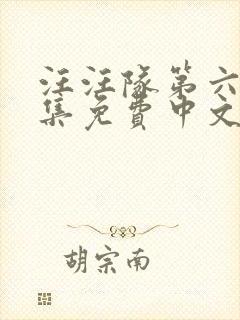 汪汪隊第六
集免費中文
胡宗南